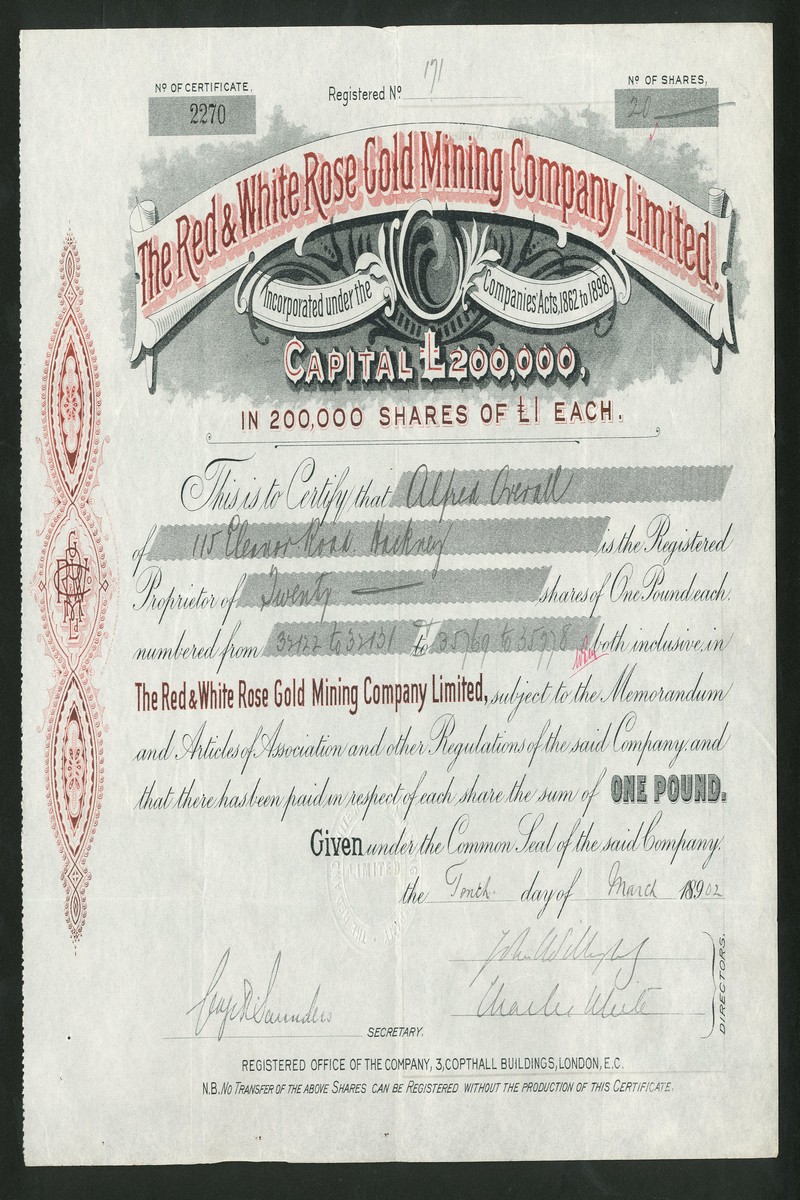 Nº OF CERTIFICATE,
2270
Registered Nº 171
Nº OF SHARES,
20
The Red & White Rose Gold Mining Company Limited.
Incorporated under the Companies' Acts, 1862 to 1898.
CAPITAL £200,000,
IN 200,000 SHARES OF £1 EACH.
This is to Certify that Alfred Overall
of 115 Eleanor Road. Hackney is the Registered
Proprietor of Twenty shares of One Pound each.
numbered from 32122 to 32131 To 35769 to 35778 both inclusive, in
The Red & White Rose Gold Mining Company Limited, subject to the Memorandum
and Articles of Association and other Regulations of the said Company, and
that there has been paid in respect of each share the sum of ONE POUND.
Given under the Common Seal of the said Company.
LIMITED
the Tenth day of March 18902
Charles White
Saunders
SECRETARY.
DIRECTORS.
REGISTERED OFFICE OF THE COMPANY, 3, COPTHALL BUILDINGS, LONDON, E.C.
N.B. No TRANSFER OF THE ABOVE SHARES CAN BE REGISTERED WITHOUT THE PRODUCTION OF THIS CERTIFICATE.